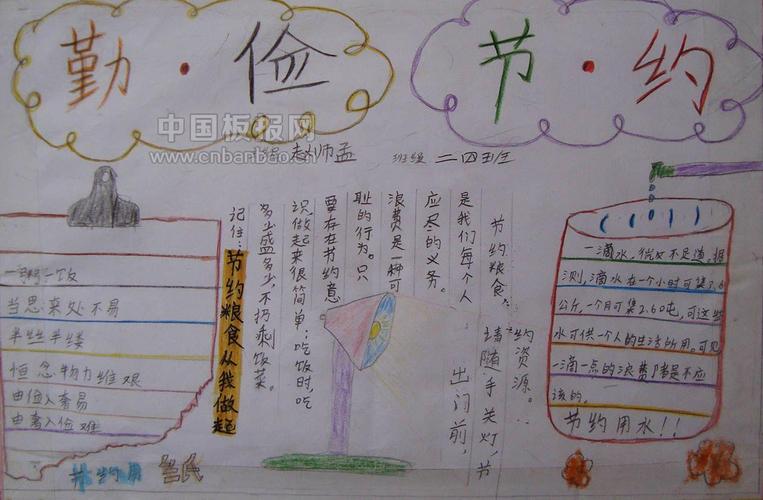 勤·俭 节·约
中国板报网
www.cnbanbao.cn
赵师孟 班级 二四班
一粥一饭
当思来处不易
半丝半缕
恒念物力维艰
由俭入奢易
由奢入俭难
节约用
纸
节约粮食，
是我们每个人
应尽的义务。
浪费是一种可
耻的行为。只
要存在节约意
识，做起来很简单：吃饭时，吃
多少盛多少，不扔剩饭菜。
记住：节约粮食从我做起
出门前，
请随手关灯，节
约资源。
一滴水，微不足道，据
测，滴水在一个小时可集3.6
公斤，一个月可集2.60吨，可这些
水可供一个人的生活所用。可见
一滴一点的浪费都是不应
该的。
节约用水！！